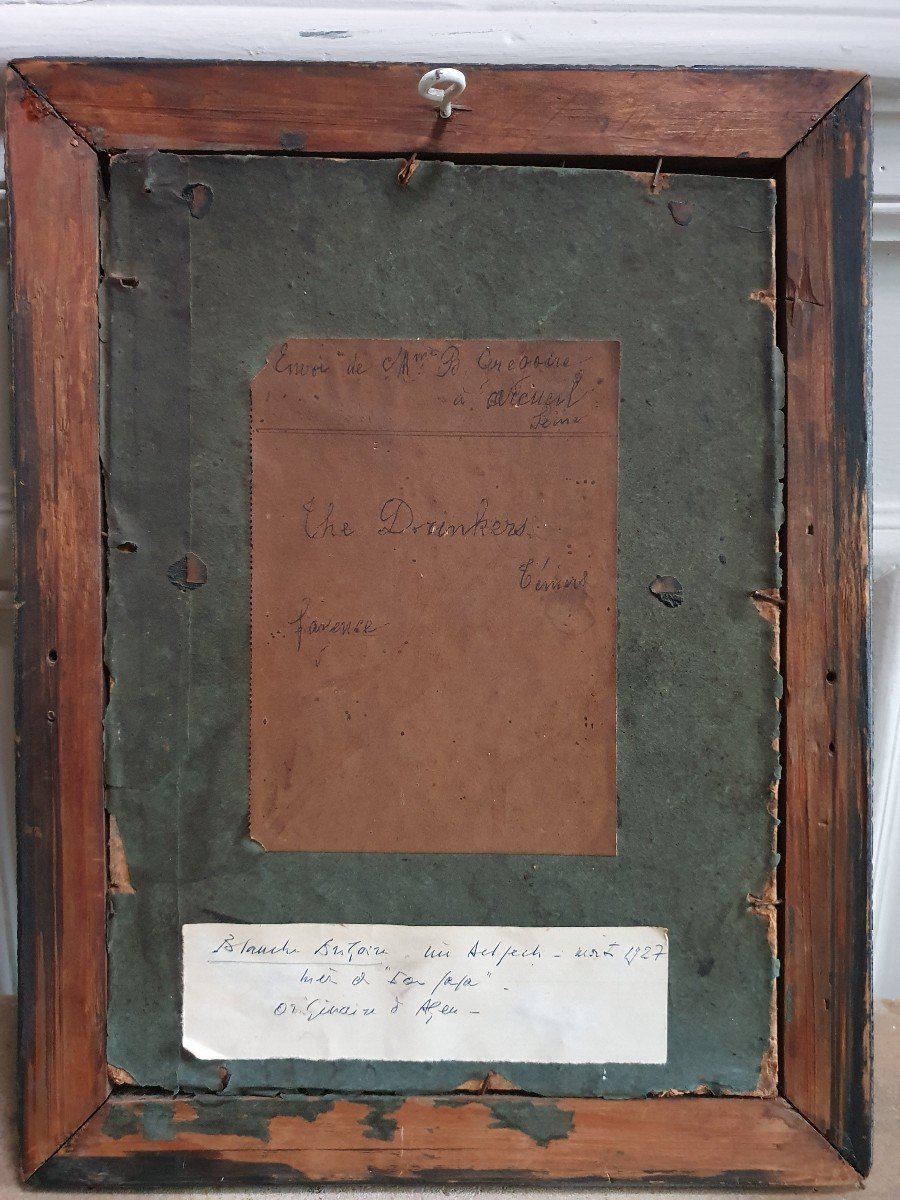 Envoi de Mme B. Grégoire
à Arcueil
Seine
The Drinkers.
Téniers
fayence
Blanche - née - morte 1927
mère de "
originaire d'Agen -